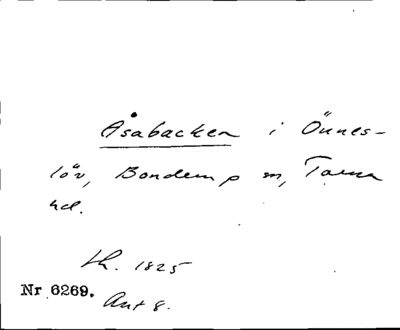 Åsabacken i Önnes-
löv, Bonderup sn, Torna
hd.
Lh. 1825
Nr 6269. Ant 8.